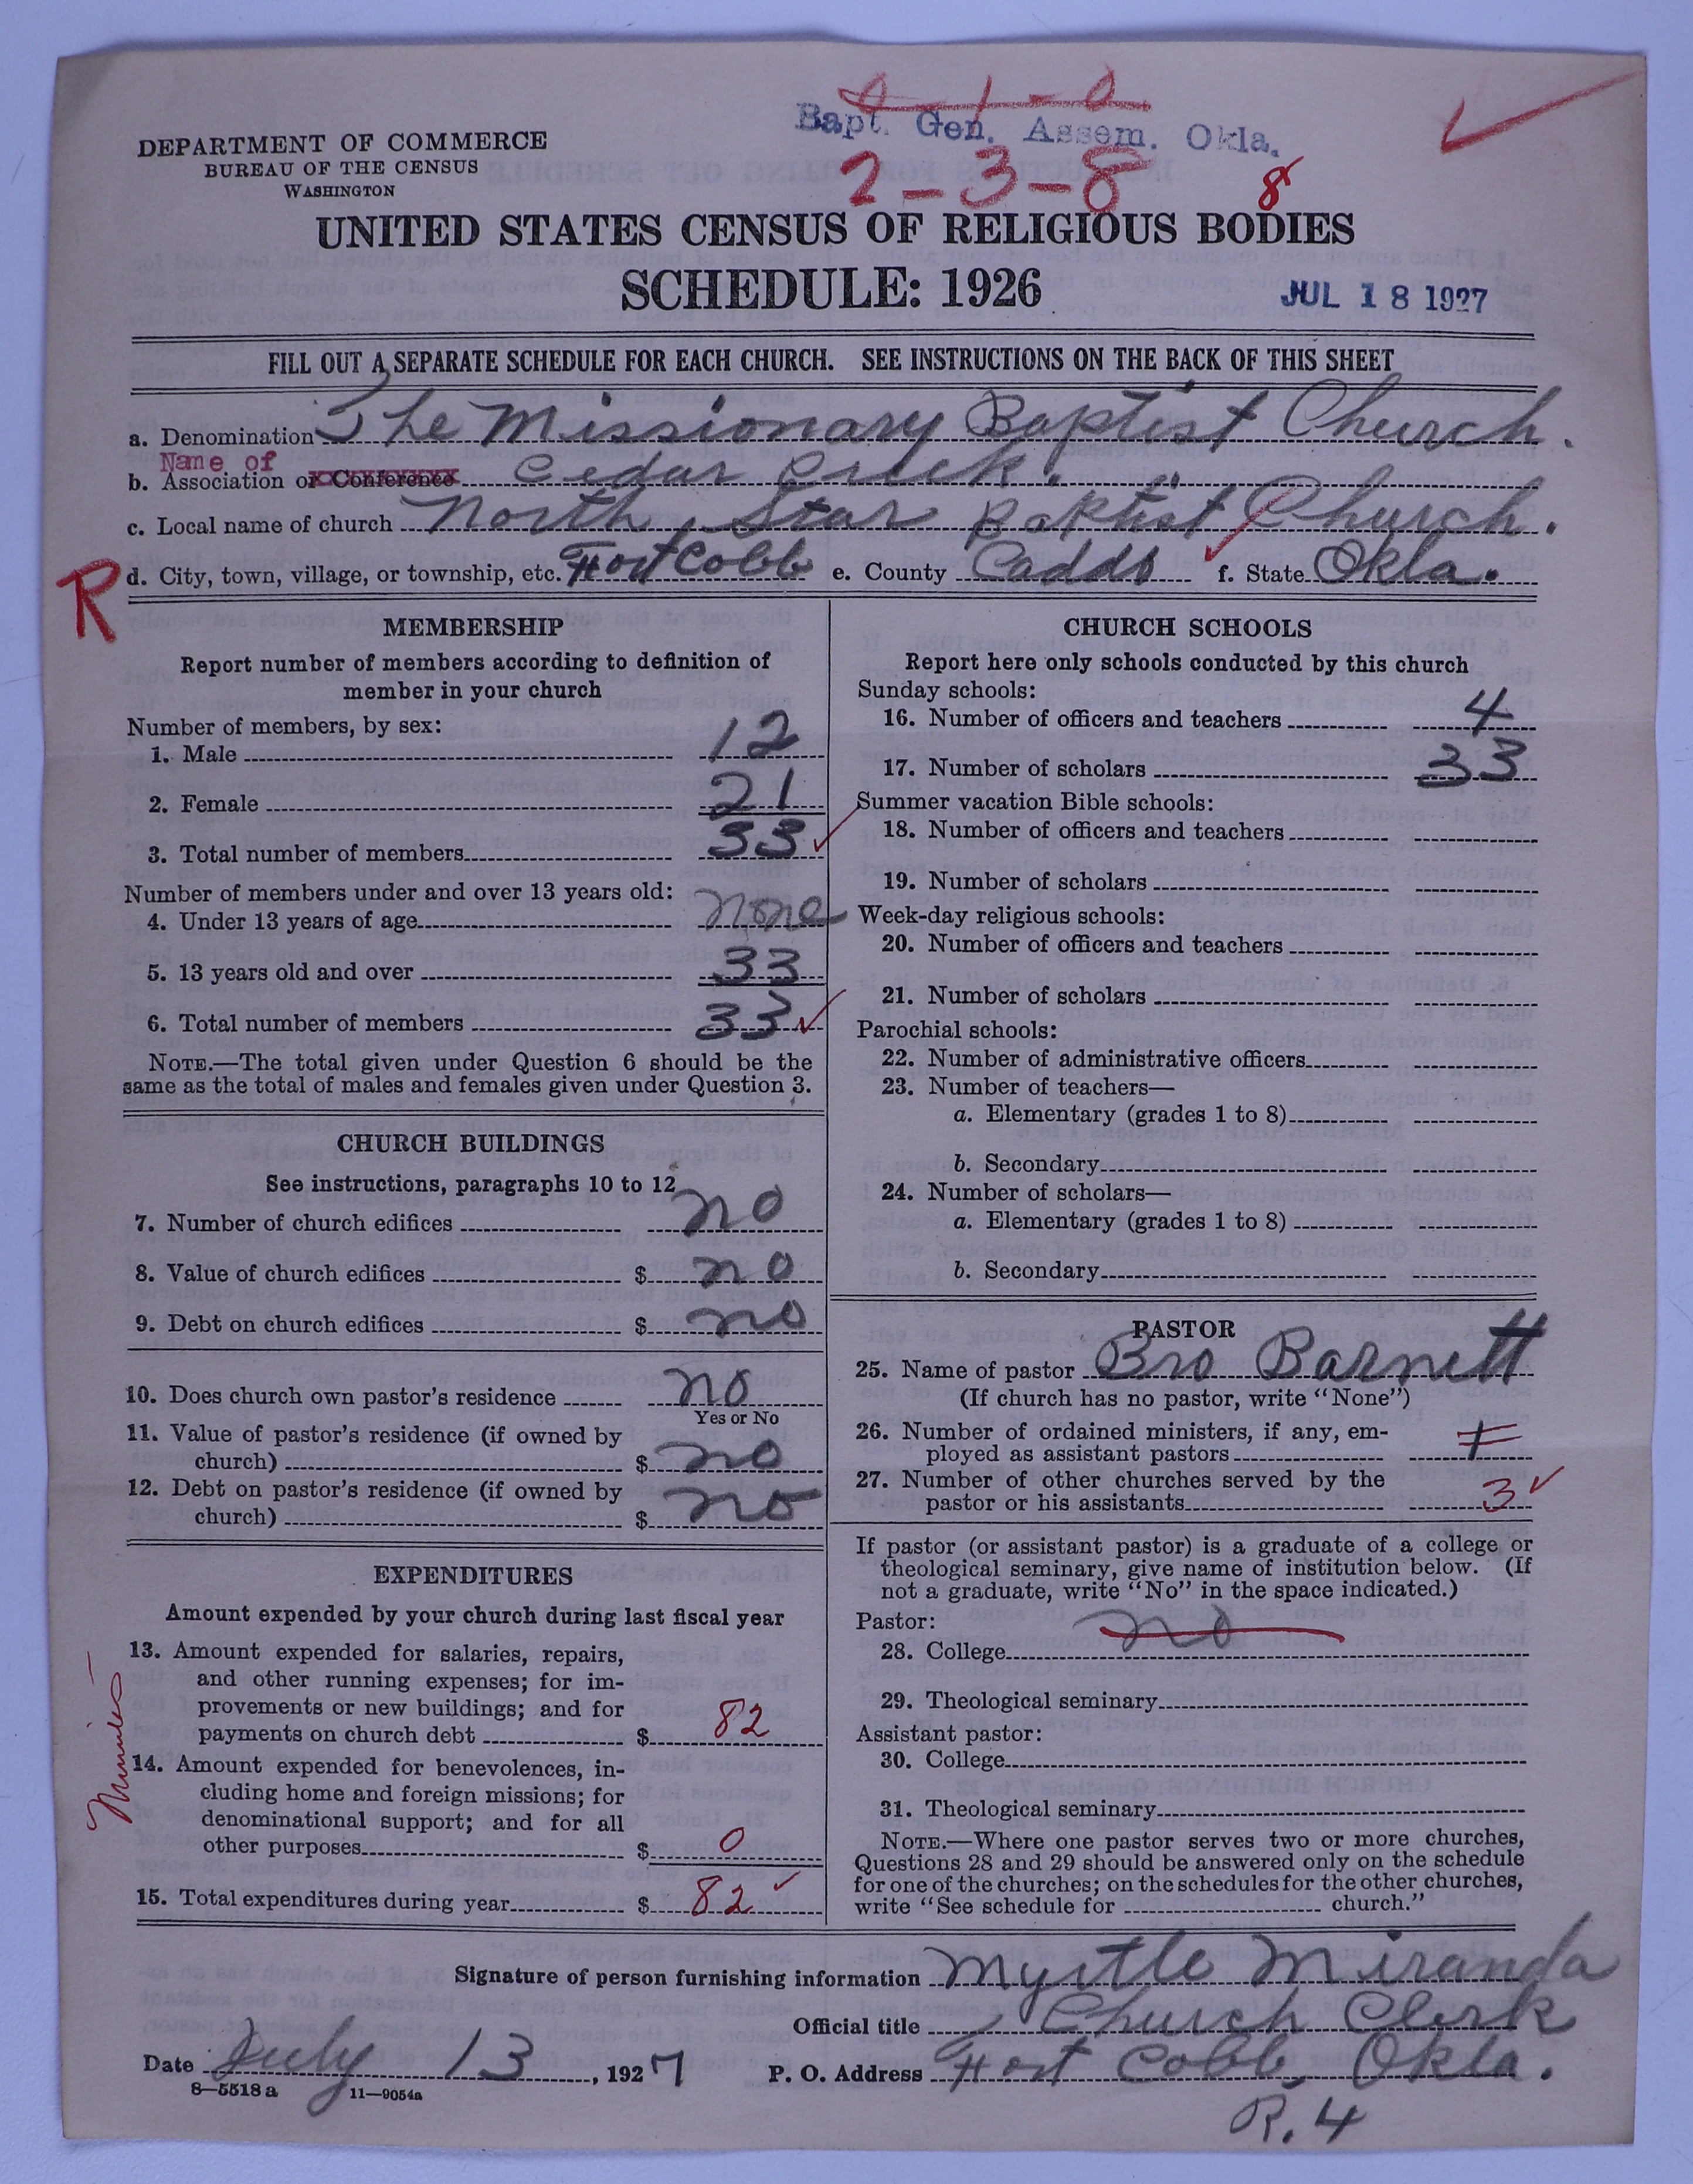 0-1-0
Bapt. Gen. Assem. Okla.
2-3-8
8
DEPARTMENT OF COMMERCE
BUREAU OF THE CENSUS
WASHINGTON
UNITED STATES CENSUS OF RELIGIOUS BODIES
SCHEDULE: 1926
JUL 18 1927
FILL OUT A SEPARATE SCHEDULE FOR EACH CHURCH. SEE INSTRUCTIONS ON THE BACK OF THIS SHEET
a. Denomination The Missionary Baptist Church.
Name of
b. Association or Conference Cedar Creek.
c. Local name of church North Star Baptist Church.
R
d. City, town, village, or township, etc. Fort Cobb e. County Caddo f. State Okla.
MEMBERSHIP
Report number of members according to definition of
member in your church
Number of members, by sex:
1. Male 12
2. Female 21
3. Total number of members 33
Number of members under and over 13 years old:
4. Under 13 years of age none
5. 13 years old and over 33
6. Total number of members 33
NOTE.—The total given under Question 6 should be the
same as the total of males and females given under Question 3.
CHURCH BUILDINGS
See instructions, paragraphs 10 to 12
7. Number of church edifices no
8. Value of church edifices $ no
9. Debt on church edifices $ no
10. Does church own pastor's residence no
Yes or No
11. Value of pastor's residence (if owned by
church) $ no
12. Debt on pastor's residence (if owned by
church) $ no
EXPENDITURES
Amount expended by your church during last fiscal year
13. Amount expended for salaries, repairs,
and other running expenses; for im-
provements or new buildings; and for
payments on church debt $ 82
Minutes
14. Amount expended for benevolences, in-
cluding home and foreign missions; for
denominational support; and for all
other purposes $ 0
15. Total expenditures during year $ 82
CHURCH SCHOOLS
Report here only schools conducted by this church
Sunday schools:
16. Number of officers and teachers 4
17. Number of scholars 33
Summer vacation Bible schools:
18. Number of officers and teachers
19. Number of scholars
Week-day religious schools:
20. Number of officers and teachers
21. Number of scholars
Parochial schools:
22. Number of administrative officers
23. Number of teachers—
a. Elementary (grades 1 to 8)
b. Secondary
24. Number of scholars—
a. Elementary (grades 1 to 8)
b. Secondary
PASTOR
25. Name of pastor Bro Barnett
(If church has no pastor, write "None")
26. Number of ordained ministers, if any, em-
ployed as assistant pastors
27. Number of other churches served by the
pastor or his assistants 3
If pastor (or assistant pastor) is a graduate of a college or
theological seminary, give name of institution below. (If
not a graduate, write "No" in the space indicated.)
Pastor:
28. College no
29. Theological seminary
Assistant pastor:
30. College
31. Theological seminary
NOTE.—Where one pastor serves two or more churches,
Questions 28 and 29 should be answered only on the schedule
for one of the churches; on the schedules for the other churches,
write "See schedule for church."
Signature of person furnishing information Myrtle Miranda
Official title Church Clerk
Date July 13, 1927 P. O. Address Fort Cobb, Okla.
8—5518 a 11—9054a
R. 4